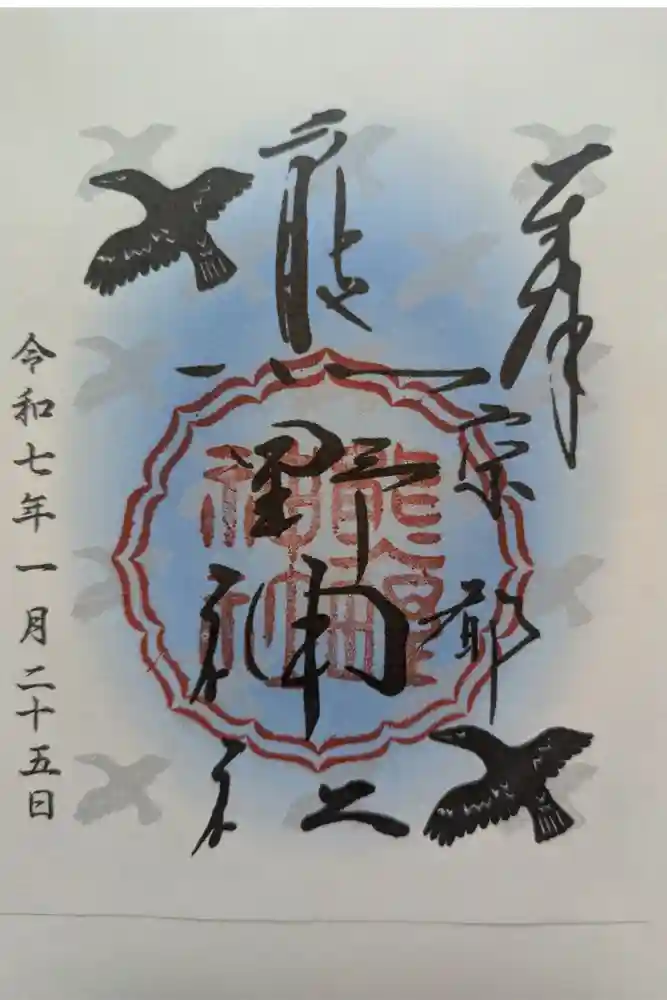 奉
京都
熊野神社
熊野
神社
令和七年一月二十五日